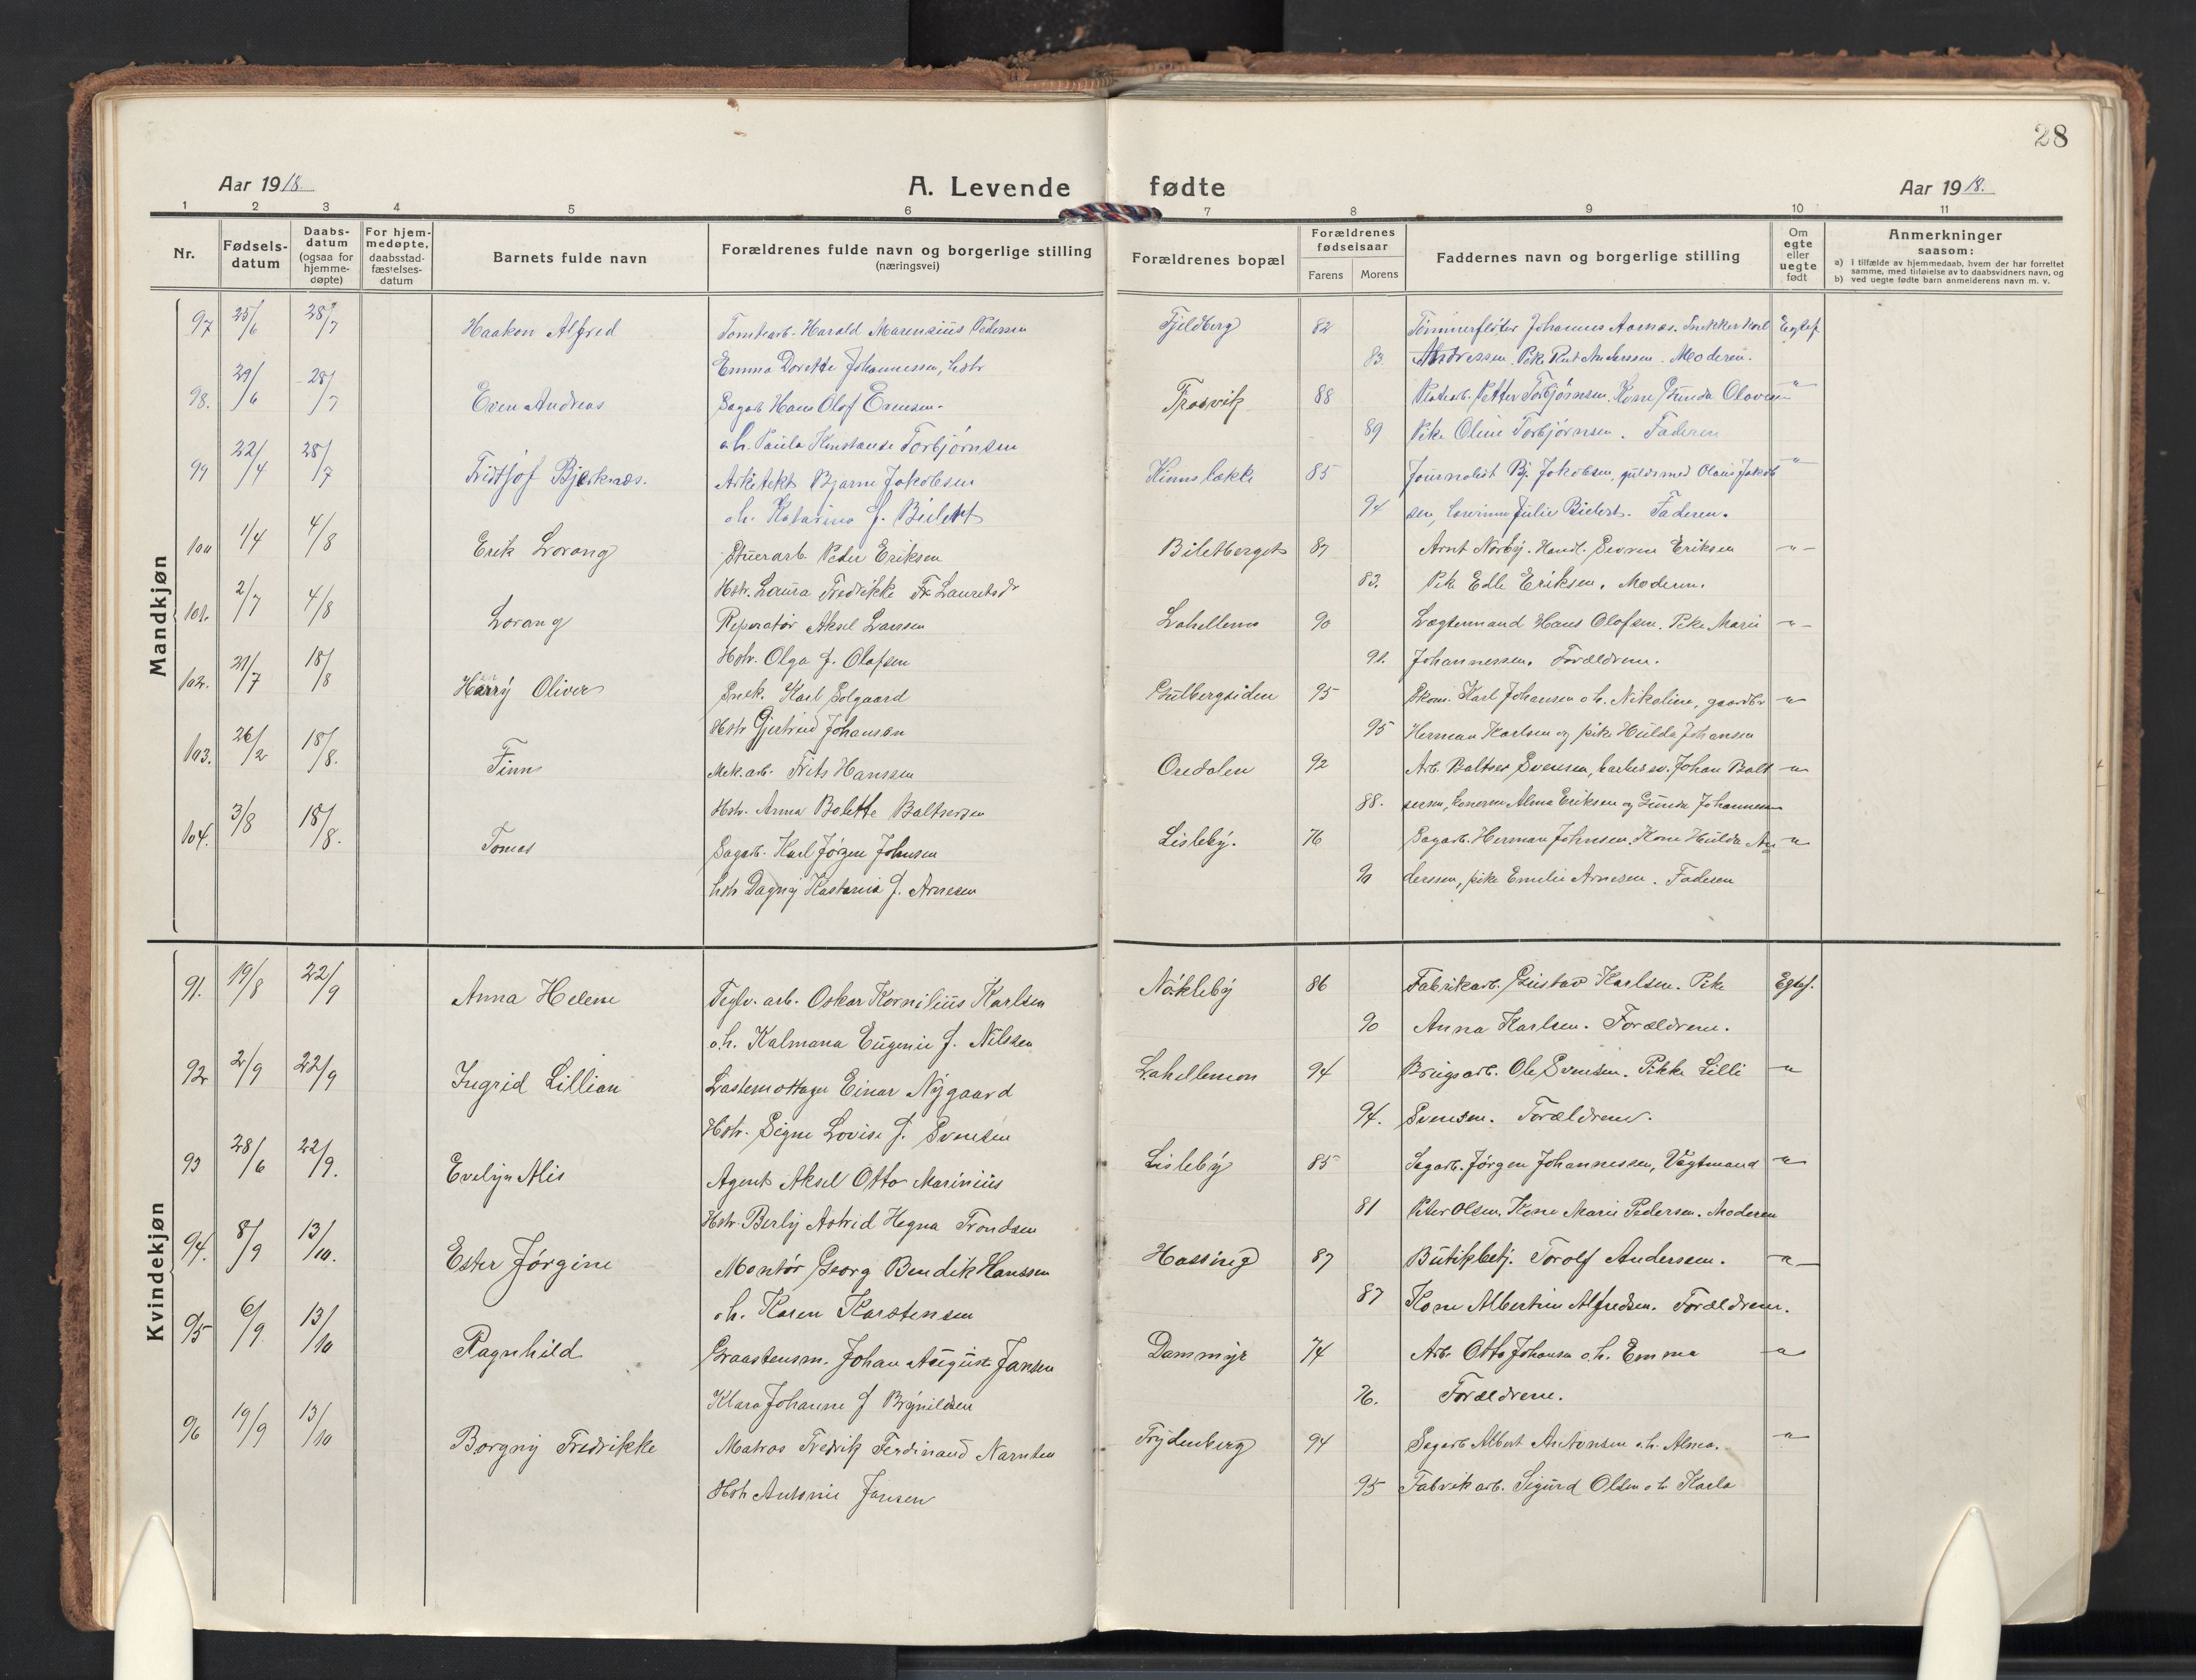 28
Aar 1918.
A. Levende fødte
Aar 1918.
1 2 3 4 5 6 7 8 9 10 11
Nr.
Fødsels-
datum
Daabs-
datum
(ogsaa for
hjemme-
døpte)
For hjem-
medøpte,
daabsstad-
fæstelses-
datum
Barnets fulde navn
Forældrenes fulde navn og borgerlige stilling
(næringsvei)
Forældrenes bopæl
Forældrenes
fødselsaar
Farens Morens
Faddernes navn og borgerlige stilling
Om
egte
eller
uegte
født
Anmerkninger
saasom:
a) i tilfælde av hjemmedaab, hvem der har forrettet
samme, med tilføielse av to daabsvidners navn, og
b) ved uegte fødte barn anmelderens navn m. v.
Mandkjøn
97 25/6 28/7 Haakon Alfred Tomtearb. Harald Marensius Pedersen Fjeldberg 82 Tømmerfløter Johannes Aarnæs. Snekker Karl Egtef
Emma Dorette Johannessen, hstr 83. Andressen. Pike Rut Anderssen. Moderen.
98. 29/6 28/7 Even Andreas Sagarb. Hans Olof Evensen. Trosvik 88 Petter Torbjørnsen. Kone Gunda Olavesen "
o.h. Paula Konstanse Torbjørnsen 89 Pike Oline Torbjørnsen. Faderen
99 22/4 28/7 Fridtjof Bjerknæs. Arkitekt Bjarne Jakobsen 85 Journalist Bj. Jakobsen, guldsmed Olaus Jakob "
o.h. Katarina f. Bielert 94 sen, Julie Bielert. Faderen.
100 1/4 4/8 Erik Lorang Stuerarb. Peder Eriksen Biletberget 87 Arnt Norby. Handl. Eriksen -"-
Hstr. Laura Fredrikke Lauretsdr 83. Pike Edle Eriksen. Moderen.
101. 2/7 4/8 Lorang Reparatør Aksel Larssen Lahellemo 90 Lægtermand Hans Olofsen. Pike Marie -"-
Hstr. Olga f. Olafsen 91. Johannessen. Forældrene.
102. 31/7 18/8 Harry Oliver Snek. Karl Solgaard Gulbergsiden 95 Skom. Karl Johansen o.h. Nikoline, gaardbr "
Hstr Gjertrud Johansen 95 Herman Karlsen og pike Hulda Johansen
103. 26/2 18/8. Finn Mek.arb. Frits Hanssen Oredalen 92 Arb. Baltser Svensen, Johan Balt "
Hstr. Anna Bolette Baltsersen 88. sersen, konerne Alma Eriksen og Gunda Johannesen
104. 3/8 18/8. Tomas Sagarb. Karl Jørgen Johnsen Lisleby. 76 Sagarb. Herman Johnsen. Kone Hulda An "
hstr Dagny f. Arnesen 90 derssen, pike Emilie Arnesen. Faderen
Kvindekjøn
91. 19/8 22/9 Anna Helene Teglv. arb. Oskar Kornilius Karlsen Nökleby 86 Fabrikarb. Gustav Karlsen. Pike Egtef.
o.h. Kalmana Eugenie f. Nilssen 90 Anna Karlsen. Forældrene.
92 2/9 22/9 Ingrid Lillian Lastemottager Einar Nygaard Lahellemon 94 Brugsarb. Ole Svensen. Pikke Lilli "
Hstr. Signe Lovise f. Svensen 94. Svensen. Forældrene.
93 28/6 22/9. Evelyn Alis Agent Aksel Otto Marinius Lisleby 85 Sagarb. Jørgen Johannessen, Vægtmand "
Hstr. Berly Astrid Hegna Trondsen 81 Peter Olsen. Kone Marie Pedersen. Moderen
94. 8/9 13/10. Ester Jørgine Montør Georg Bendik Hanssen Hassing 87 Butikbetj. Torolf Anderssen. "
o.h. Karen Karstensen 87 Kone Albertine Alfredsen. Forældrene.
95 6/9 13/10 Ragnhild Graastensm. Johan August Jansen Dammyr 74 Arb. Otto Johansen o.h. Emma "
Klara Johanne f Brynildsen 76. Forældrene.
96 19/9 13/10 Borgny Fredrikke Matros Fredrik Ferdinand Narnten Frydenberg 94 Sagarb Albert Antonsen o.h. Alma. "
Hstr Antonie Jansen 95 Fabrikarb. Sigurd Olsen o h Karla